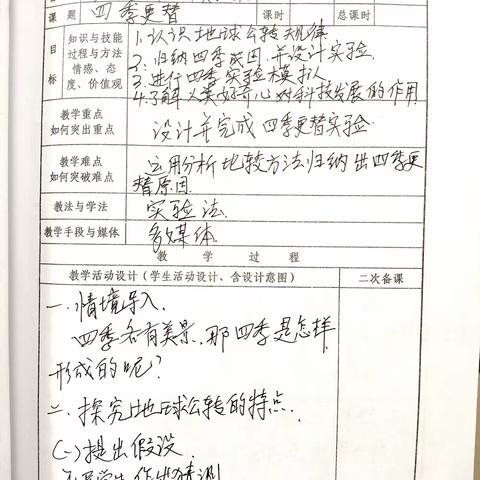 课 题 四季更替 课时 总课时
目标 知识与技能 过程与方法 情感、态度、价值观
1.认识地球公转规律.
2.归纳四季成因.并设计实验.
3.进行四季实验模拟
4.了解人类好奇心对科技发展的作用.
教学重点
如何突出重点
设计并完成四季更替实验.
教学难点
如何突破难点
运用分析比较方法归纳出四季更
替原因.
教法与学法 实验法.
教学手段与媒体 多媒体.
教 学 过 程
教学活动设计(学生活动设计、含设计意图) 二次备课
一.情境导入.
四季各有美景.那四季是怎样
形成的呢?
二.探究地球公转的特点.
(一)提出假设.
学生作出猜测